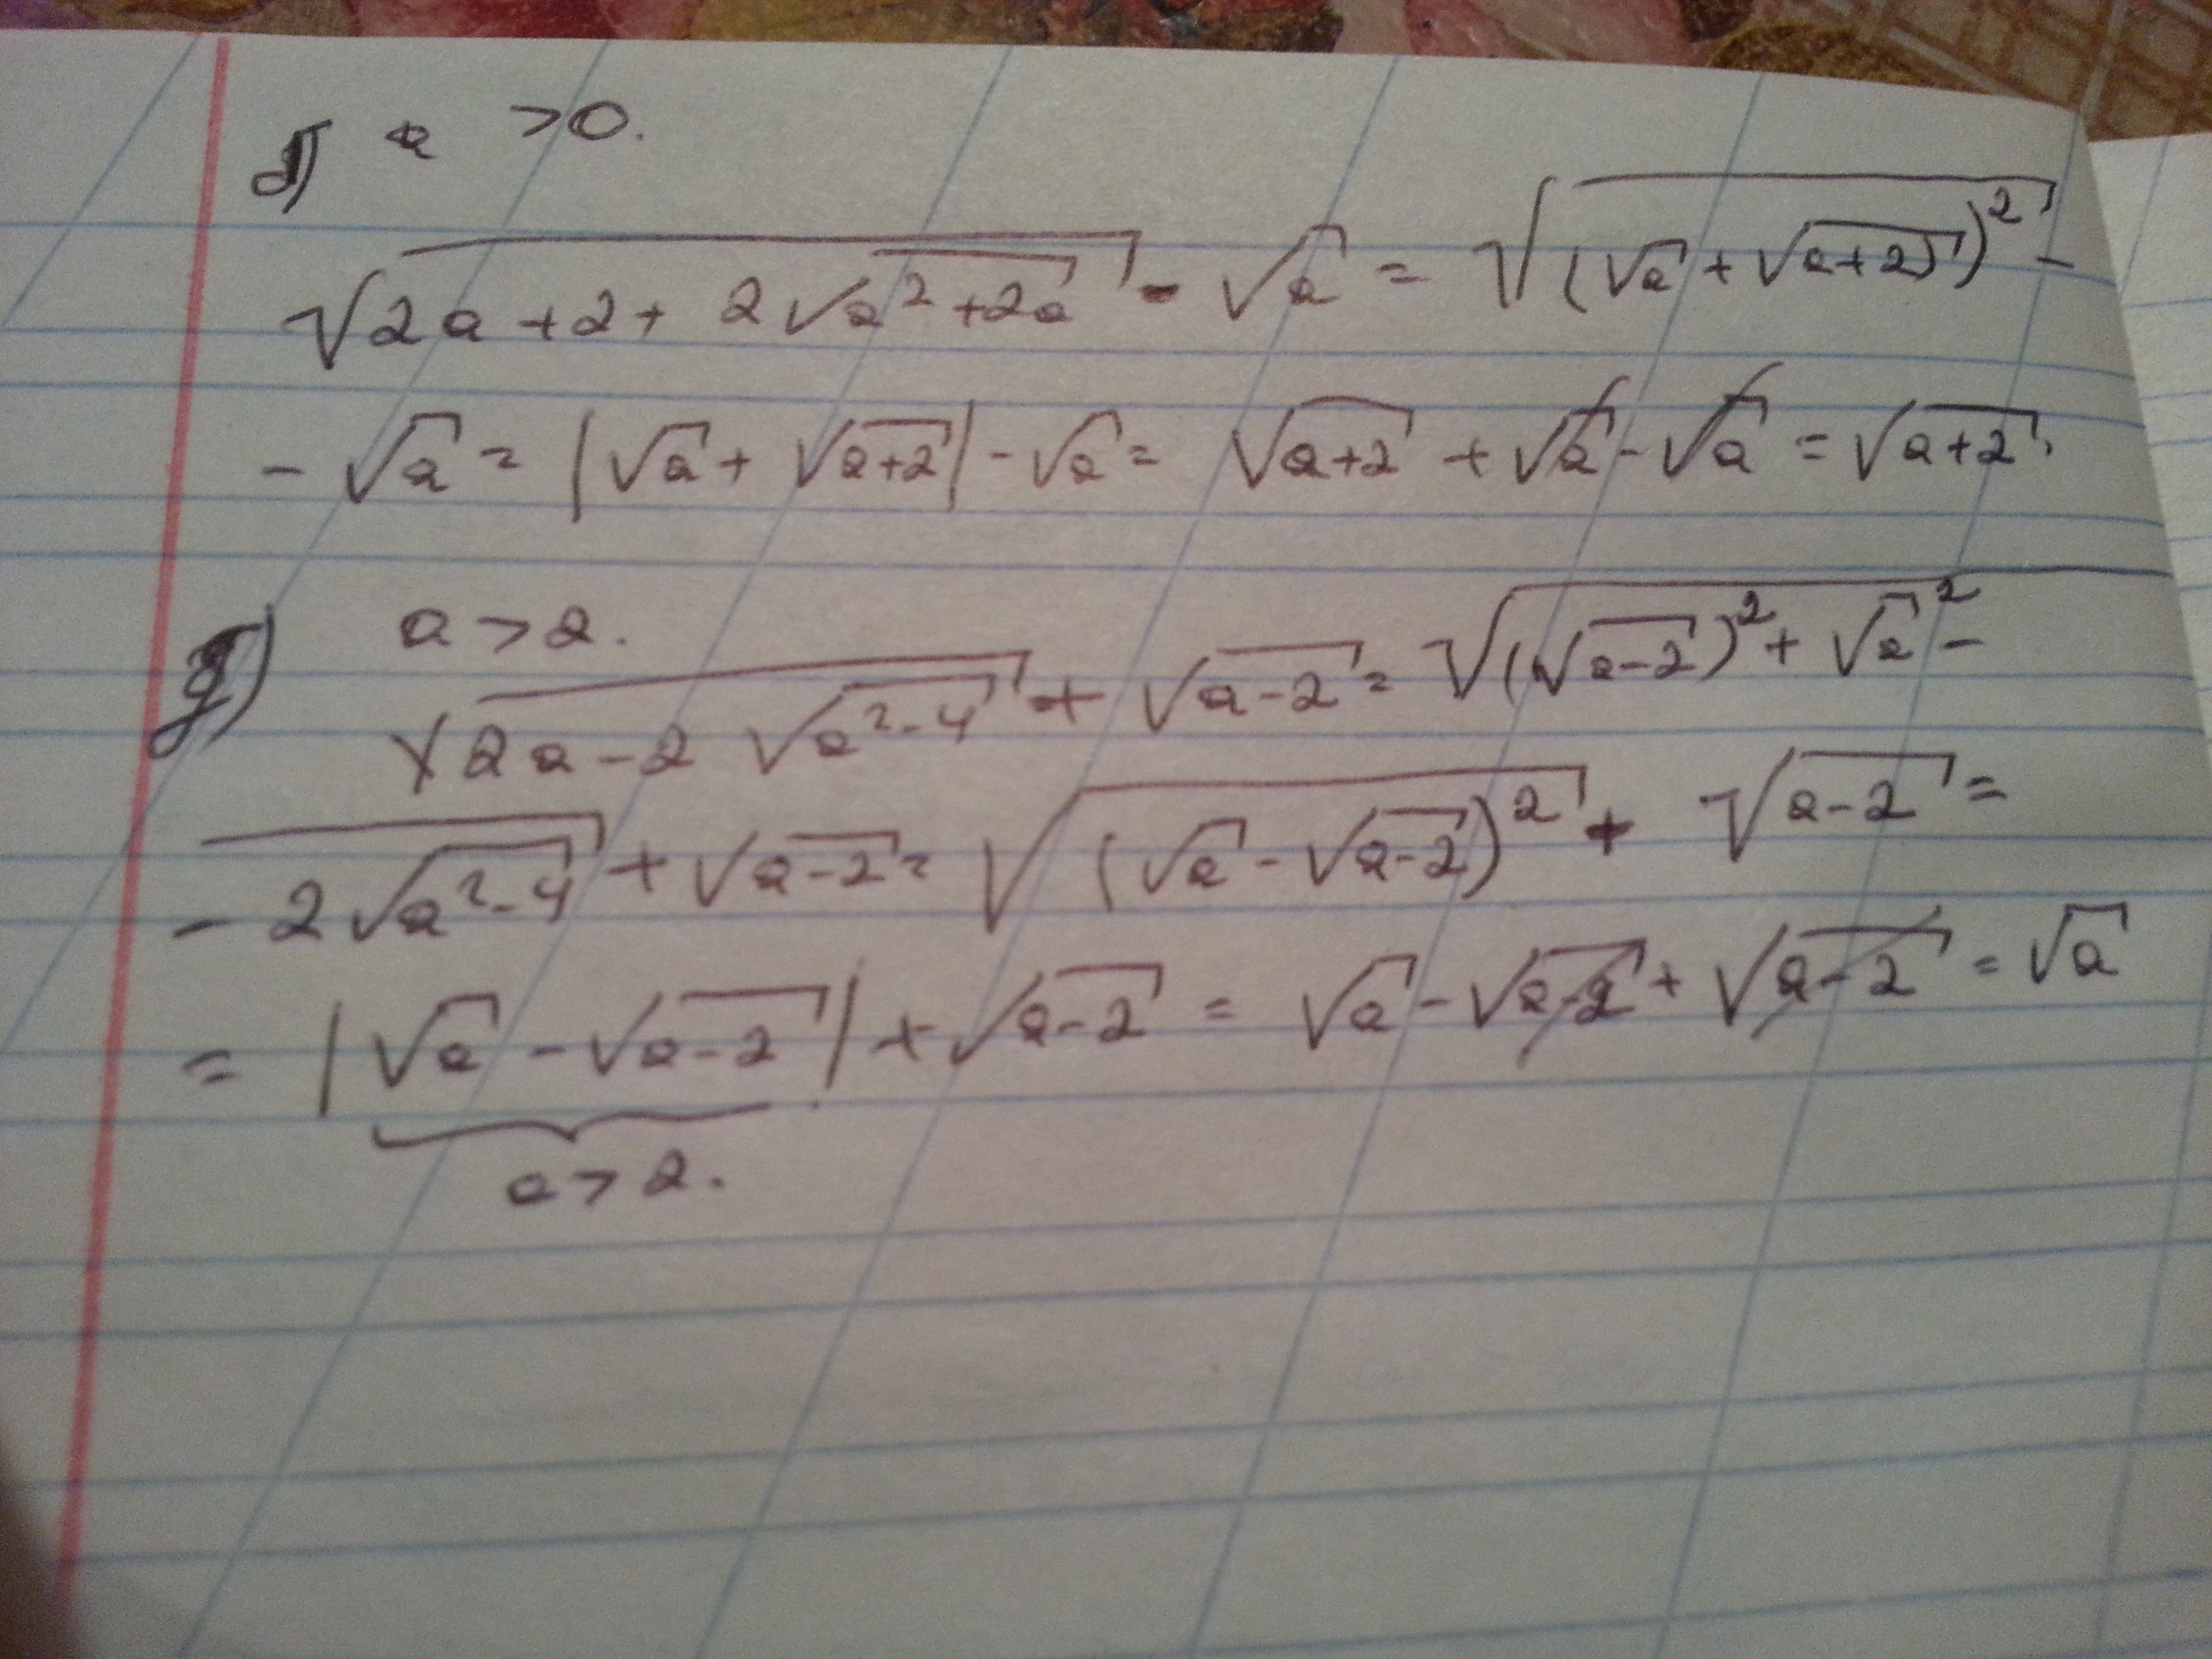 д) a > 0.
√(2a + 2 + 2√(a² + 2a)) - √a = √((√a + √(a+2))²) -
- √a = |√a + √(a+2)| - √a = √(a+2) + √a - √a = √(a+2).
g) a > 2.
√(2a - 2√(a² - 4)) + √(a-2) = √((√(a-2))² + √a² -
- 2√(a² - 4)) + √(a-2) = √((√a - √(a-2))²) + √(a-2) =
= |√a - √(a-2)| + √(a-2) = √a - √(a-2) + √(a-2) = √a
a > 2.